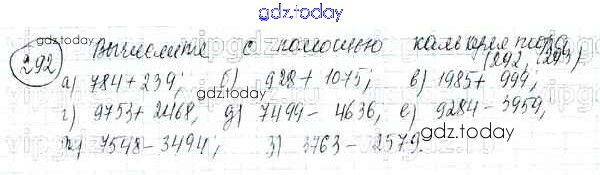 gdz.today
292 Вычислите с помощью калькулятора (292, 293)
а) 784 + 239; б) 928 + 1075; в) 1985 + 999;
г) 9753 + 2468, д) 7499 - 4636, е) 9284 - 3959,
gdz.today
ж) 7548 - 3494; з) 3763 - 2579.